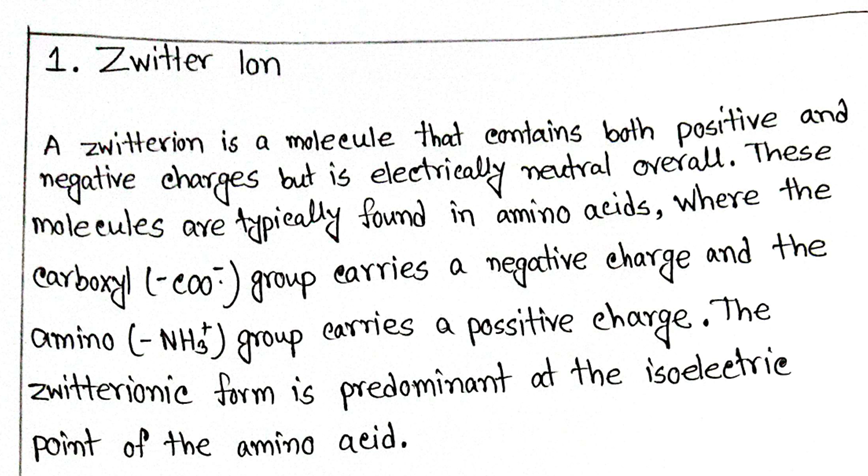 1. Zwitter Ion
A zwitterion is a molecule that contains both positive and
negative charges but is electrically neutral overall. These
molecules are typically found in amino acids, where the
carboxyl (-COO⁻) group carries a negative charge and the
amino (-NH₃⁺) group carries a possitive charge. The
zwitterionic form is predominant at the isoelectric
point of the amino acid.